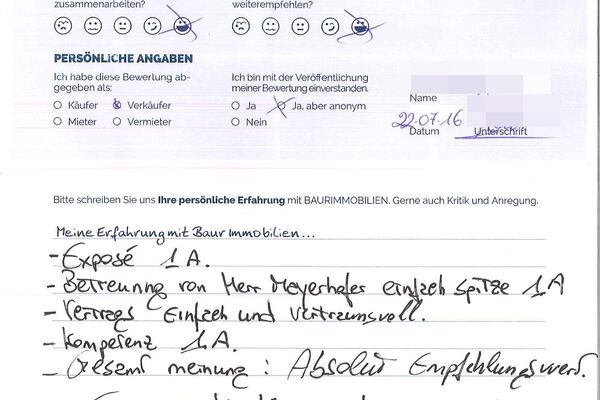 zusammenarbeiten?
weiterempfehlen?
PERSÖNLICHE ANGABEN
Ich habe diese Bewertung ab-
gegeben als:
Käufer Verkäufer
Mieter Vermieter
Ich bin mit der Veröffentlichung
meiner Bewertung einverstanden.
Ja Ja, aber anonym
Nein
Name
22.07.16
Datum Unterschrift
Bitte schreiben Sie uns Ihre persönliche Erfahrung mit BAURIMMOBILIEN. Gerne auch Kritik und Anregung.
Meine Erfahrung mit Baur Immobilien...
- Exposé 1A.
- Betreuung von Herr Meyerhofer einfach spitze 1A
- Vertrags Einfach und Vertrauensvoll.
- Kompetenz 1A.
- Gesamt meinung: Absolut Empfehlungswert.